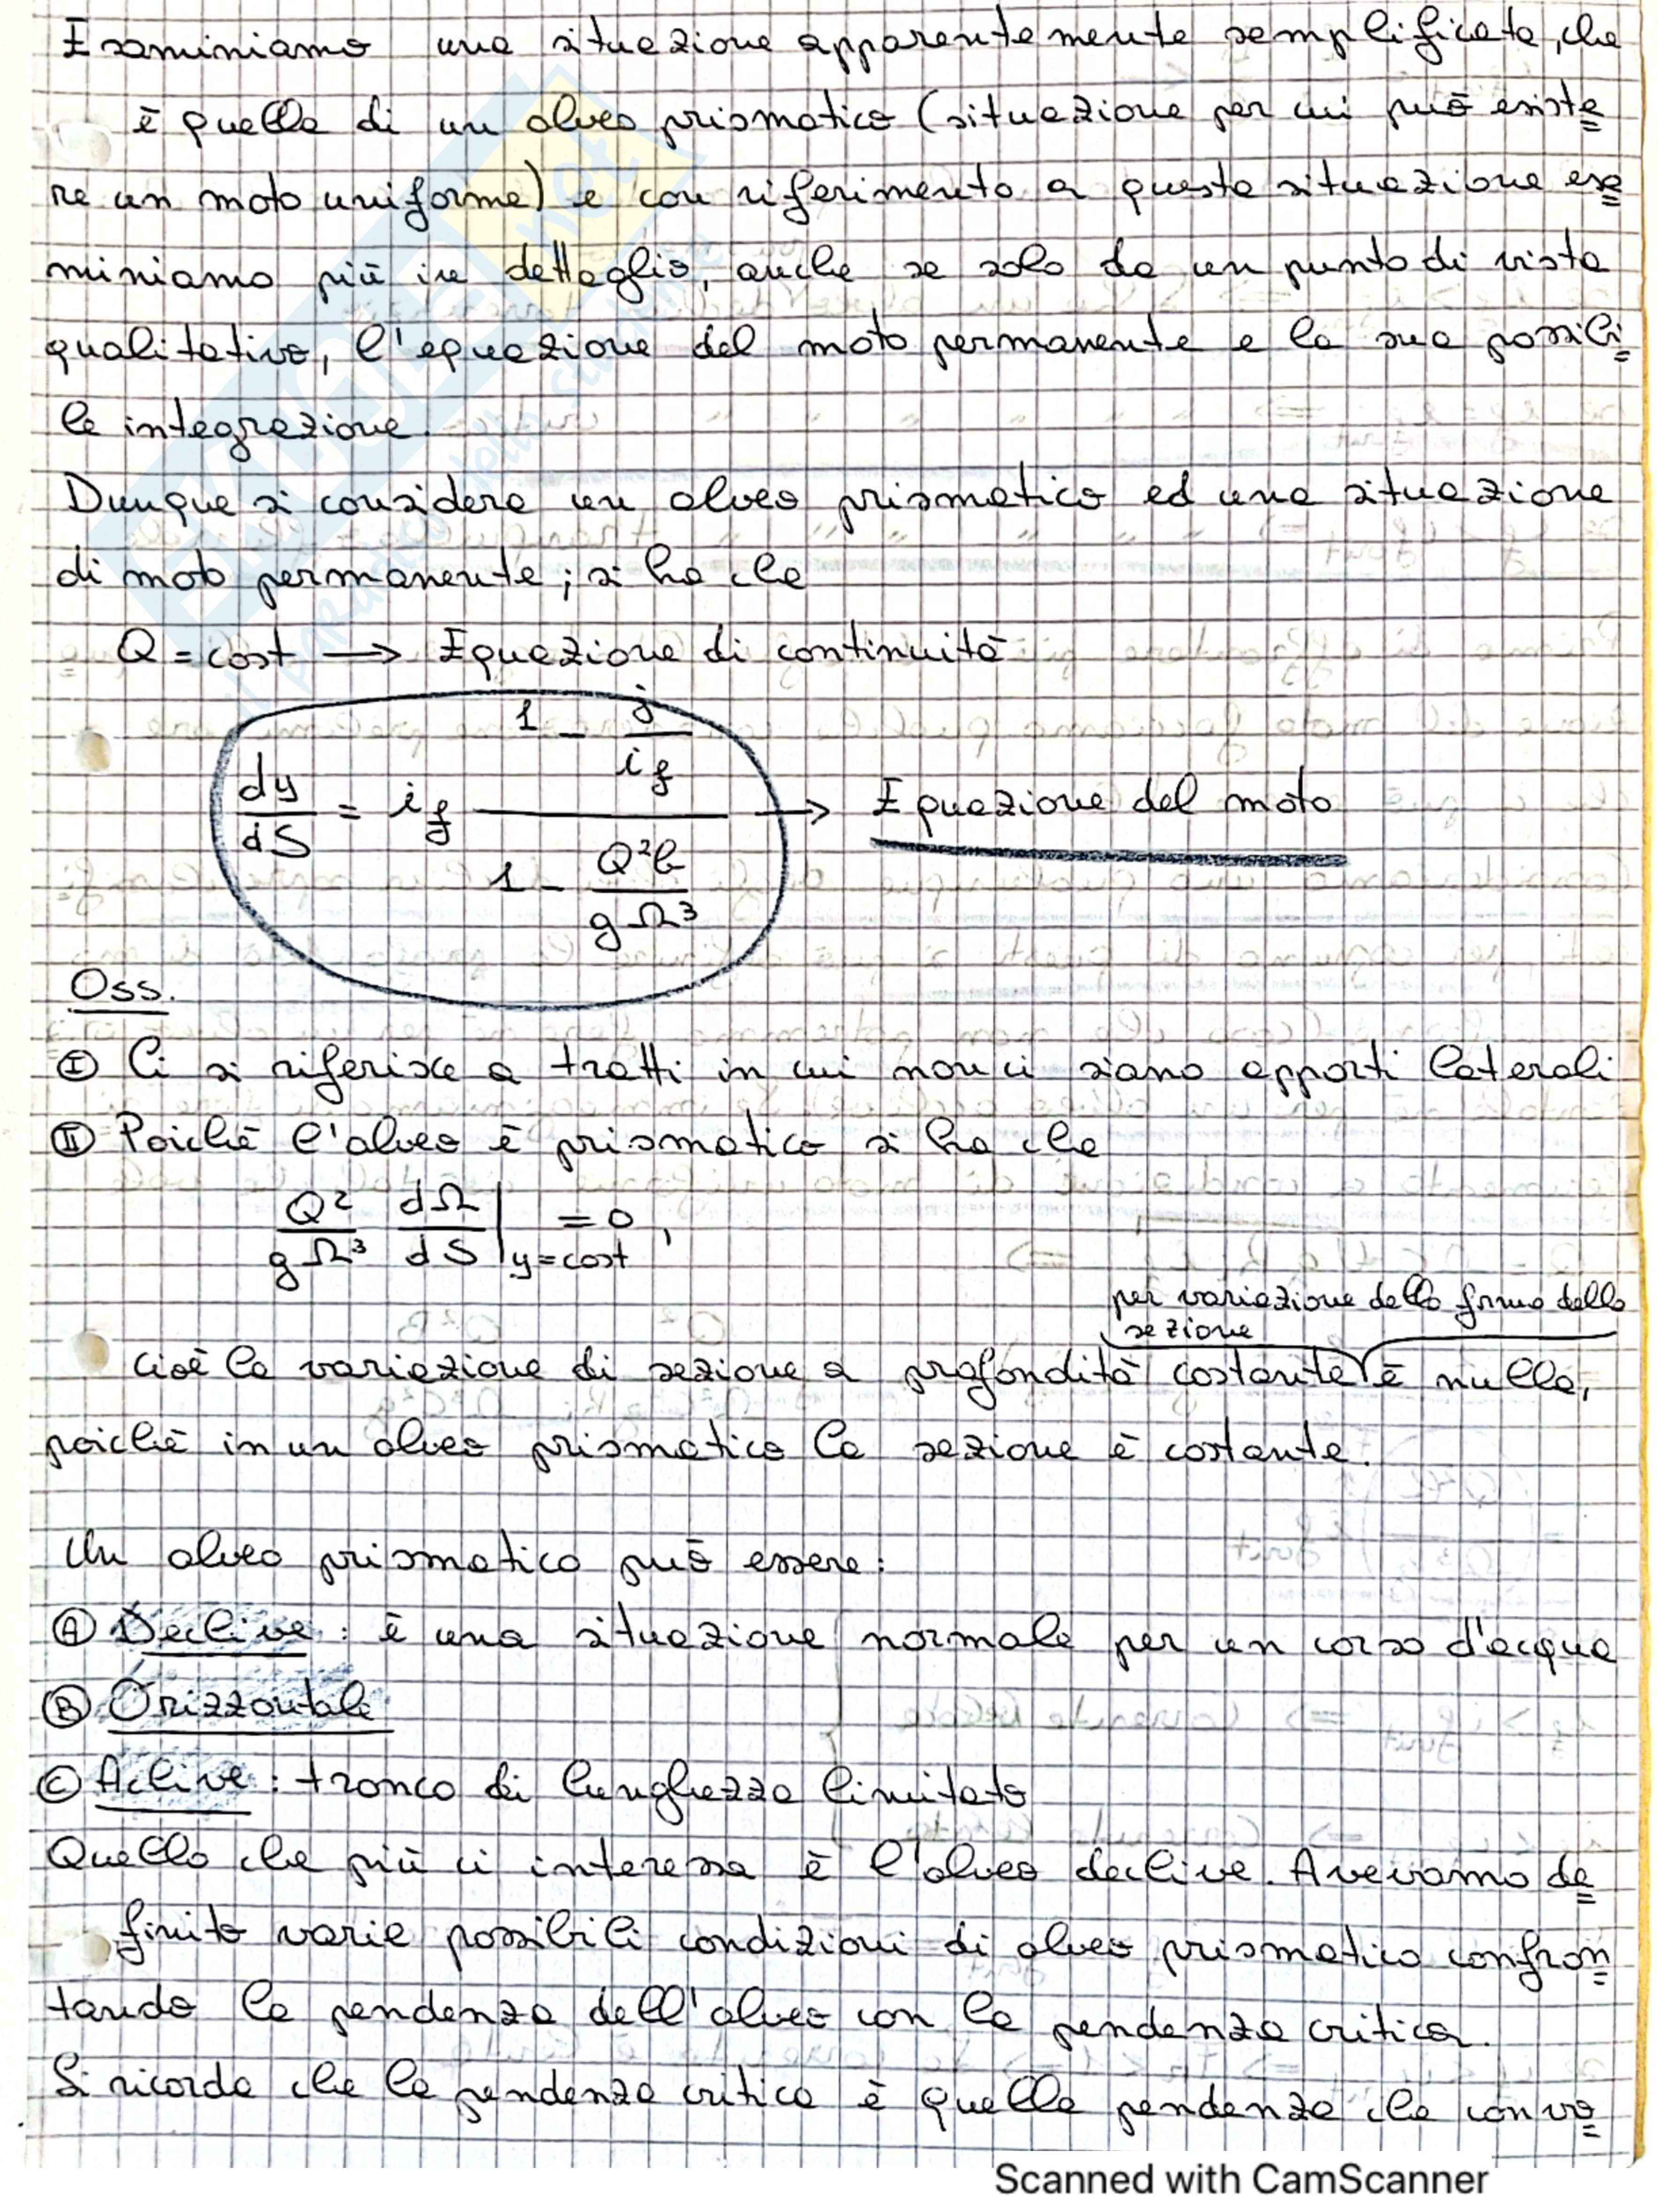 Esaminiamo una situazione apparentemente semplificata, che
è quella di un alveo prismatico (situazione per cui può esiste=
re un moto uniforme) e con riferimento a questa situazione esa=
miniamo più in dettaglio, anche se solo da un punto di vista
qualitativo, l'equazione del moto permanente e la sua possibi=
le integrazione.
Dunque si considera un alveo prismatico ed una situazione
di moto permanente; si ha che
Q = cost → Equazione di continuità
dy/dS = if (1 - j/if) / (1 - Q²b/gΩ³) → Equazione del moto
Oss.
Ⓘ Ci si riferisce a tratti in cui non ci siano apporti laterali
Ⓘ︎Ⓘ Poiché l'alveo è prismatico si ha che
Q²/gΩ³ dΩ/dS |y=cost = 0,
per variazione della forma della
sezione
cioè la variazione di sezione a profondità costante è nulla,
poiché in un alveo prismatico la sezione è costante.
Un alveo prismatico può essere:
Ⓐ Declive: è una situazione normale per un corso d'acqua
Ⓑ Orizzontale
Ⓒ Aclive: tronco di lunghezza limitata
Quello che più ci interessa è l'alveo declive. Avevamo de=
finito varie possibili condizioni di alveo prismatico confron=
tando la pendenza dell'alveo con la pendenza critica.
Si ricorda che la pendenza critica è quella pendenza che convo=
Scanned with CamScanner